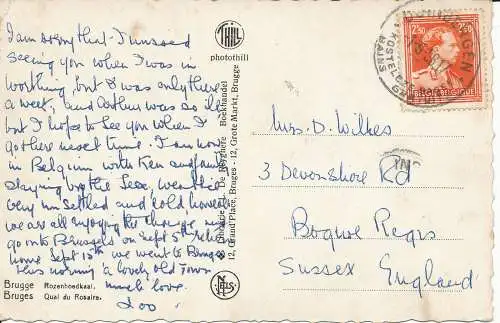 I am sorry that I missed
seeing you when I was in
Worthing, but I was only there
a week, and Arthur was so ill
but I hope to see you when I
go there next time. I am now
in Belgium with Ken and
staying by the Sea, weather
very unsettled and cold, however
we are all enjoying the change, we
go onto Brussels on Sept 5th
home Sept 13th we went to Bruges
this morning a lovely old Town
much love
Brugge Rozenhoedkaai.
Bruges Quai du Rosaire.
THILL
photothill
12, Grand'Place, Bruges - 12, Grote Markt, Brugge
NELS
2F50
BELGIE-BELGIQUE
Mrs. D. Wilkes
3 Devonshire Rd
Bognor Regis
Sussex England